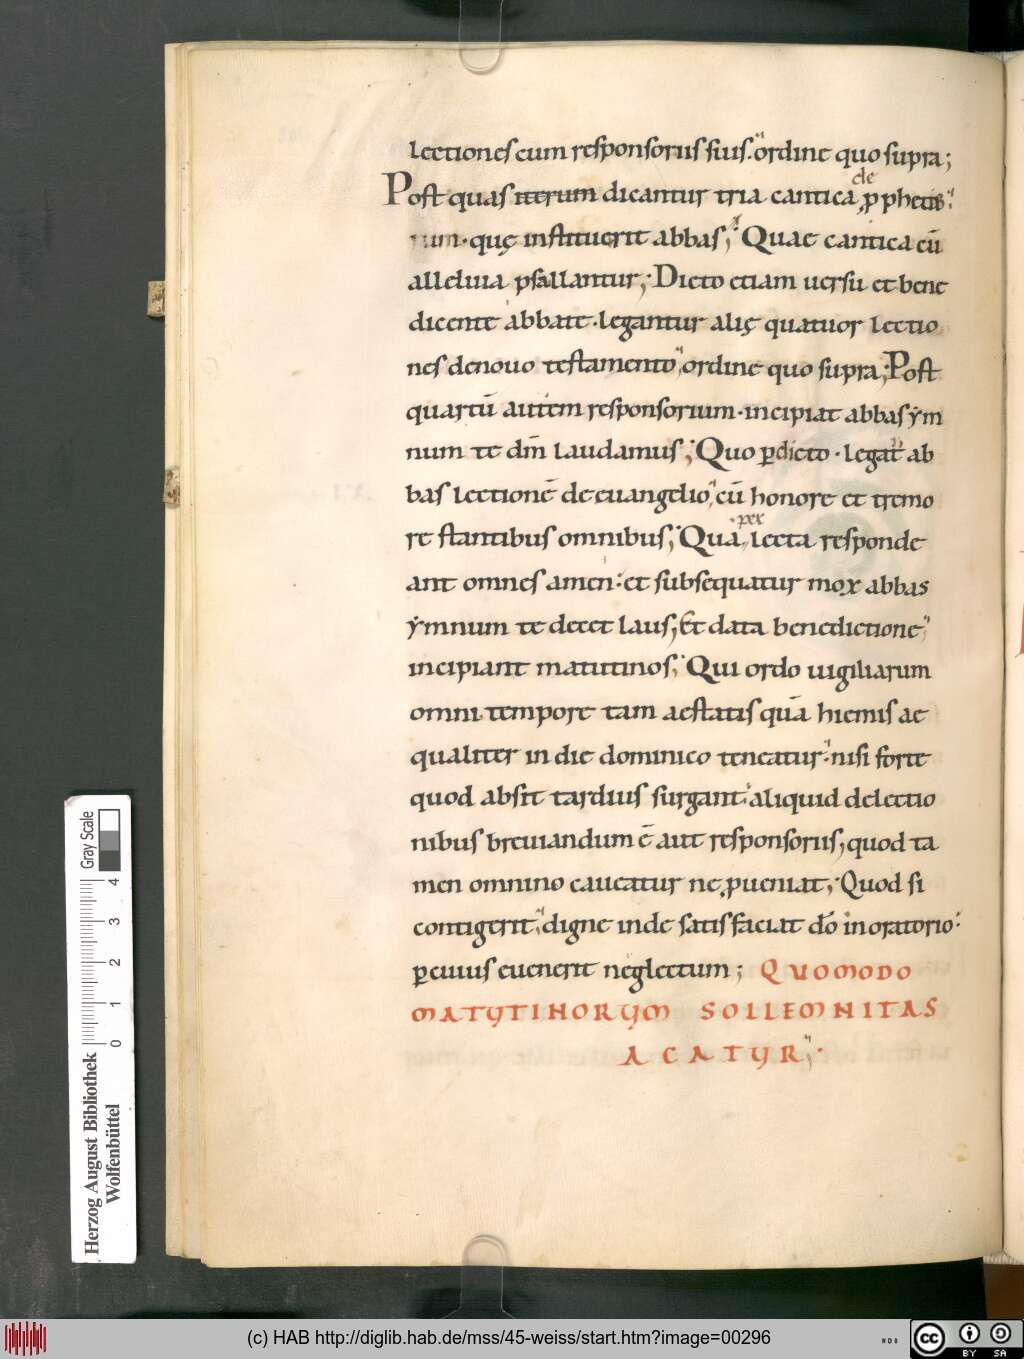 lectiones cum responsoriis suis. ordine quo supra;
Post quas iterum dicantur tria cantica, de pphetis.
quę instituerit abbas; Quae cantica cū
alleluia psallantur; Dicto etiam uersu et bene
dicente abbate. legantur alię quatuor lectio
nes denouo testamento, ordine quo supra; Post
quartū autem responsorium. incipiat abbas ẏm
num te dm̄ laudamus; Quo ꝑdicto. legat ab
bas lectionē de euangelio, cū honore et tremo
re stantibus omnibus; Qua, lecta responde
ant omnes amen: et subsequatur mox abbas
ẏmnum te decet laus; Et data benedictione;
incipiant matutinos; Qui ordo uigiliarum
omni tempore tam aestatis quā hiemis ac
qualiter in die dominico teneatur. nisi forte
quod absit tardius surgant. aliquid delectio
nibus breuiandum ē aut responsoriis, quod ta
men omnino caueatur ne ꝓueniat; Quod si
contigerit, digne inde satisfaciat dō in oratorio.
ꝑ cuius euenerit neglectum; QUOMODO
MATUTINORUM SOLLEMNITAS
ACATUR;
Gray Scale
0 1 2 3 4
Herzog August Bibliothek
Wolfenbüttel
(c) HAB http://diglib.hab.de/mss/45-weiss/start.htm?image=00296
cc BY SA